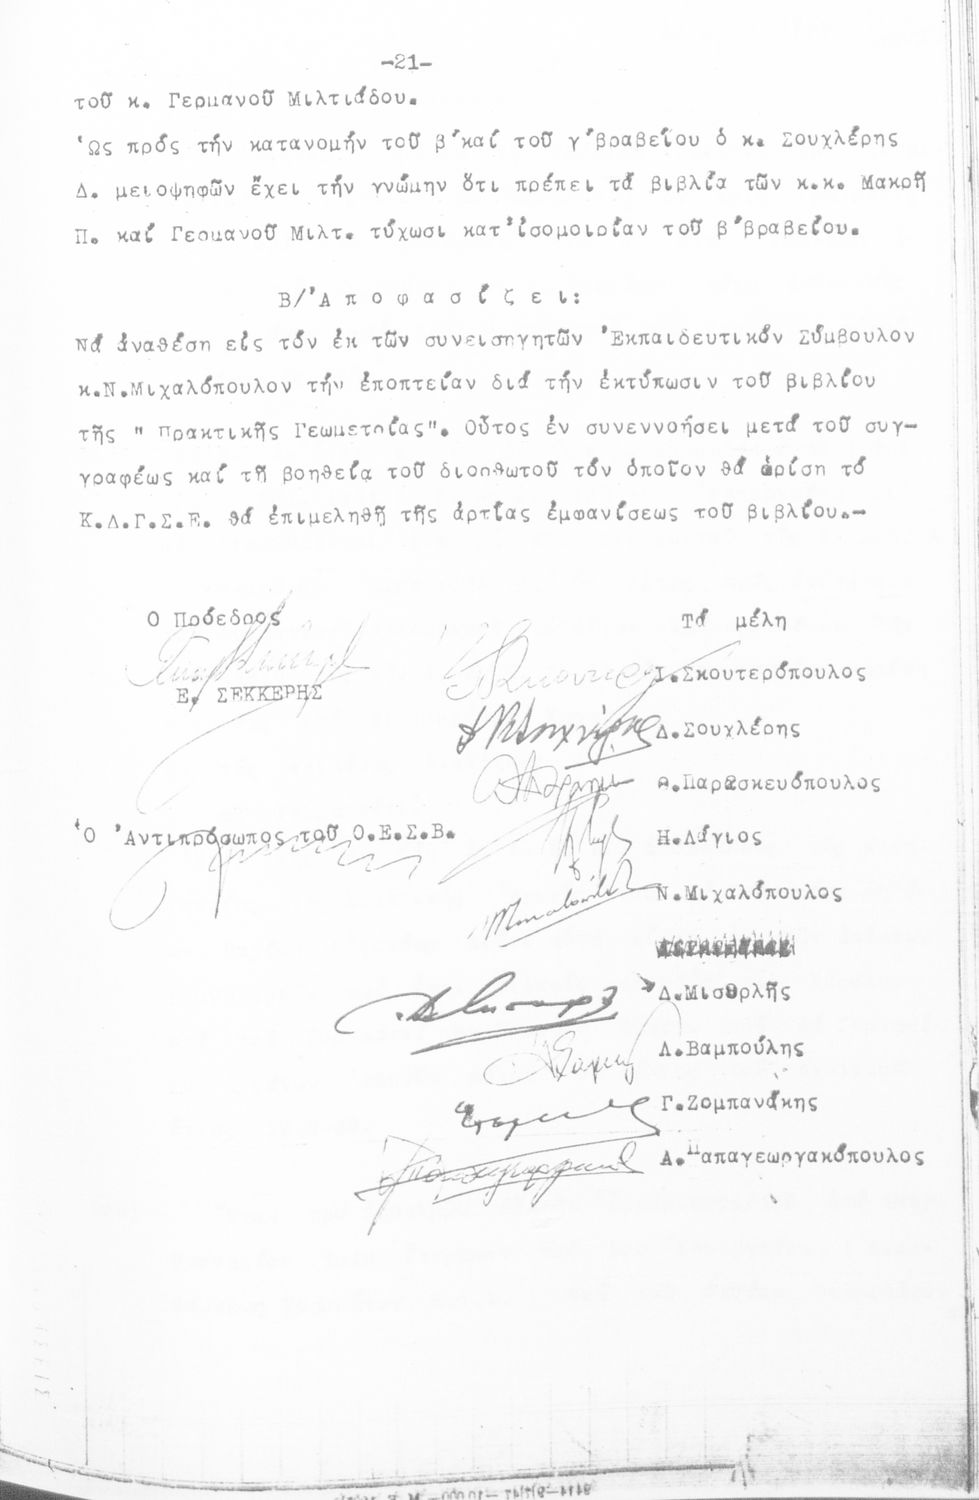 -21-
τοῦ κ. Γερμανοῦ Μιλτιάδου.
Ὡς πρός τήν κατανομήν τοῦ β΄καί τοῦ γ΄βραβείου ὁ κ. Σουχλέρης
Δ. μειοψηφῶν ἔχει τήν γνώμην ὅτι πρέπει τά βιβλία τῶν κ.κ. Μακρῆ
Π. καί Γερμανοῦ Μιλτ. τύχωσι κατ'ἰσομοιρίαν τοῦ β΄βραβείου.
Β/'Α π ο φ α σ ί ζ ε ι:
Νά ἀναθέση εἰς τόν ἐκ τῶν συνεισηγητῶν Ἐκπαιδευτικόν Σύμβουλον
κ.Ν.Μιχαλόπουλον τήν ἐποπτείαν διά τήν ἐκτύπωσιν τοῦ βιβλίου
τῆς " Πρακτικῆς Γεωμετρίας". Οὗτος ἐν συνεννοήσει μετά τοῦ συγ-
γραφέως καί τῇ βοηθείᾳ τοῦ διορθωτοῦ τόν ὁποῖον θά ὁρίση τό
Κ.Δ.Γ.Σ.Ε. θά ἐπιμεληθῆ τῆς ἀρτίας ἐμφανίσεως τοῦ βιβλίου.-
Ο Πρόεδρος
Τά μέλη
Ε. ΣΕΚΚΕΡΗΣ
Ι.Σκουτερόπουλος
Δ.Σουχλέρης
Θ.Παρασκευόπουλος
Ὁ Ἀντιπρόσωπος τοῦ Ο.Ε.Σ.Β.
Η.Λάγιος
Ν.Μιχαλόπουλος
Δ.Μισθρλῆς
Λ.Βαμπούλης
Γ.Ζομπανάκης
Α.Παπαγεωργακόπουλος